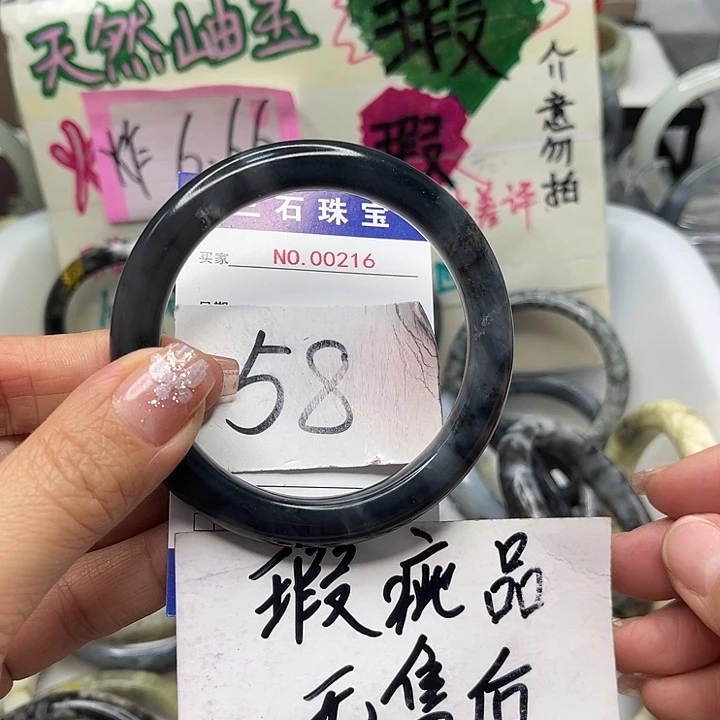 天然岫玉
瑕
介意勿拍
炸 6.66
瑕
差评
石珠宝
买家 NO.00216
58
瑕疵品
无售后